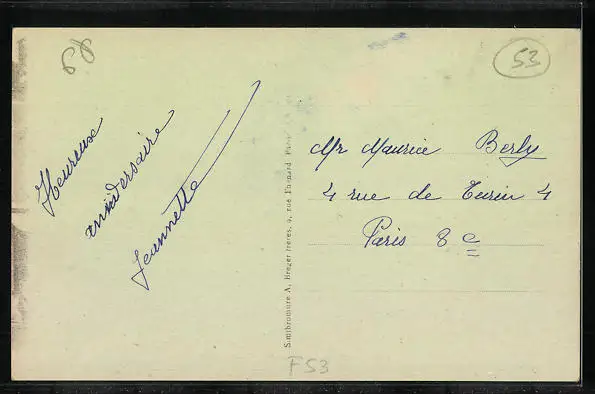 68
53
Heureux
anniversaire
Jeannette
Mr Maurice Berly
4 rue de Turin 4
Paris 8e
Simibromure A. Breger frères, 9, rue Thénard Paris
F53